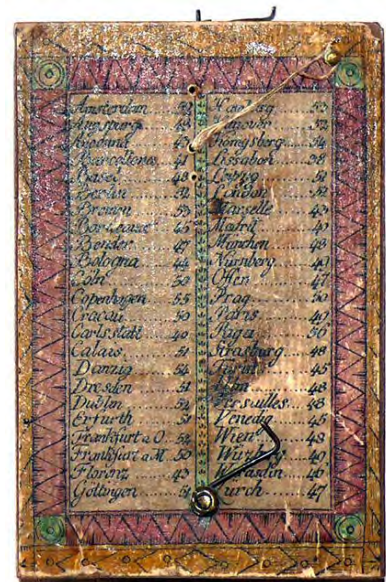 Amsterdam
Augsburg 48
Ancona
Barcellona 41
Basel 48
Berlin
Bremen 53
Bordeaux 45
Bender 47
Bologna 44
Cöln 50
Copenhagen 55
Cracau 50
Carlsstatt 40
Calais 51
Danzig 54
Dresden 51
Dublin
Erfurth
Frankfurt a O.
Frankfurt a M. 50
Florenz 43
Göttingen
Königsberg 54
Lissabon 38
Leipzig 51
London
Marseille 43
Madrid 40
München 48
Nürnberg 49
Ofen 47
Prag 50
Paris 49
Riga 56
Strasburg 48
45
48
Versailles 48
Venedig 45
Wien 48
49
Warasdin 46
47